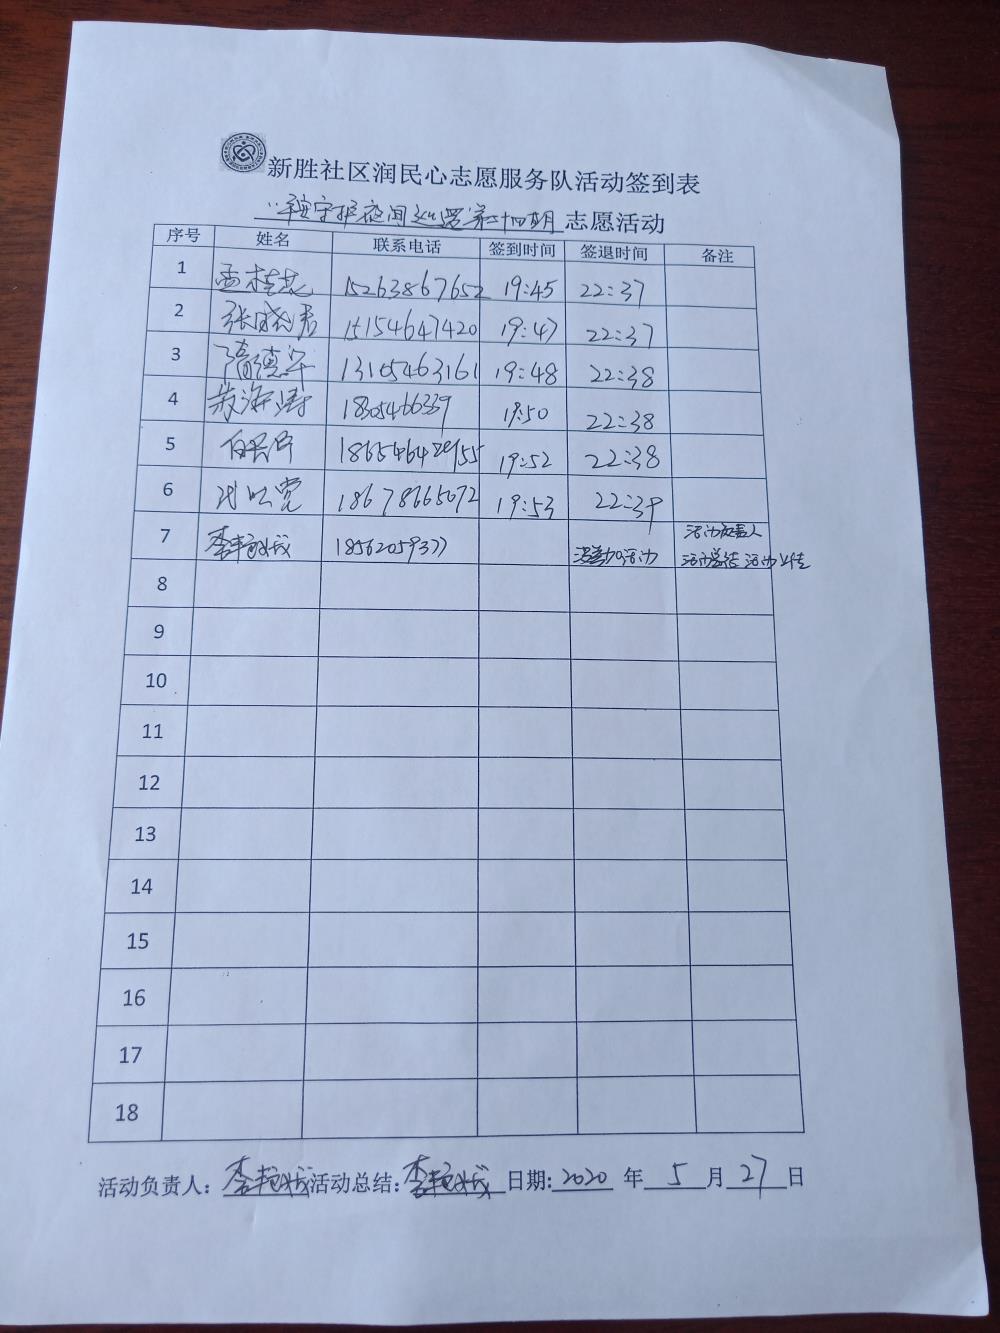 新胜社区润民心志愿服务队活动签到表
平安守护夜间巡逻第二十四期 志愿活动
序号 姓名 联系电话 签到时间 签退时间 备注
1 孟桂花 15263867652 19:45 22:37
2 张晓君 15154647420 19:47 22:37
3 隋德军 13105463161 19:48 22:38
4 海涛 1805466339 19:50 22:38
5 19:52 22:38
6 18678665072 19:53 22:39
7 李艳 18562059377 没参加活动 活动负责人
活动总结 活动上传
8
9
10
11
12
13
14
15
16
17
18
活动负责人: 李艳 活动总结: 李艳 日期: 2020 年 5 月 27 日